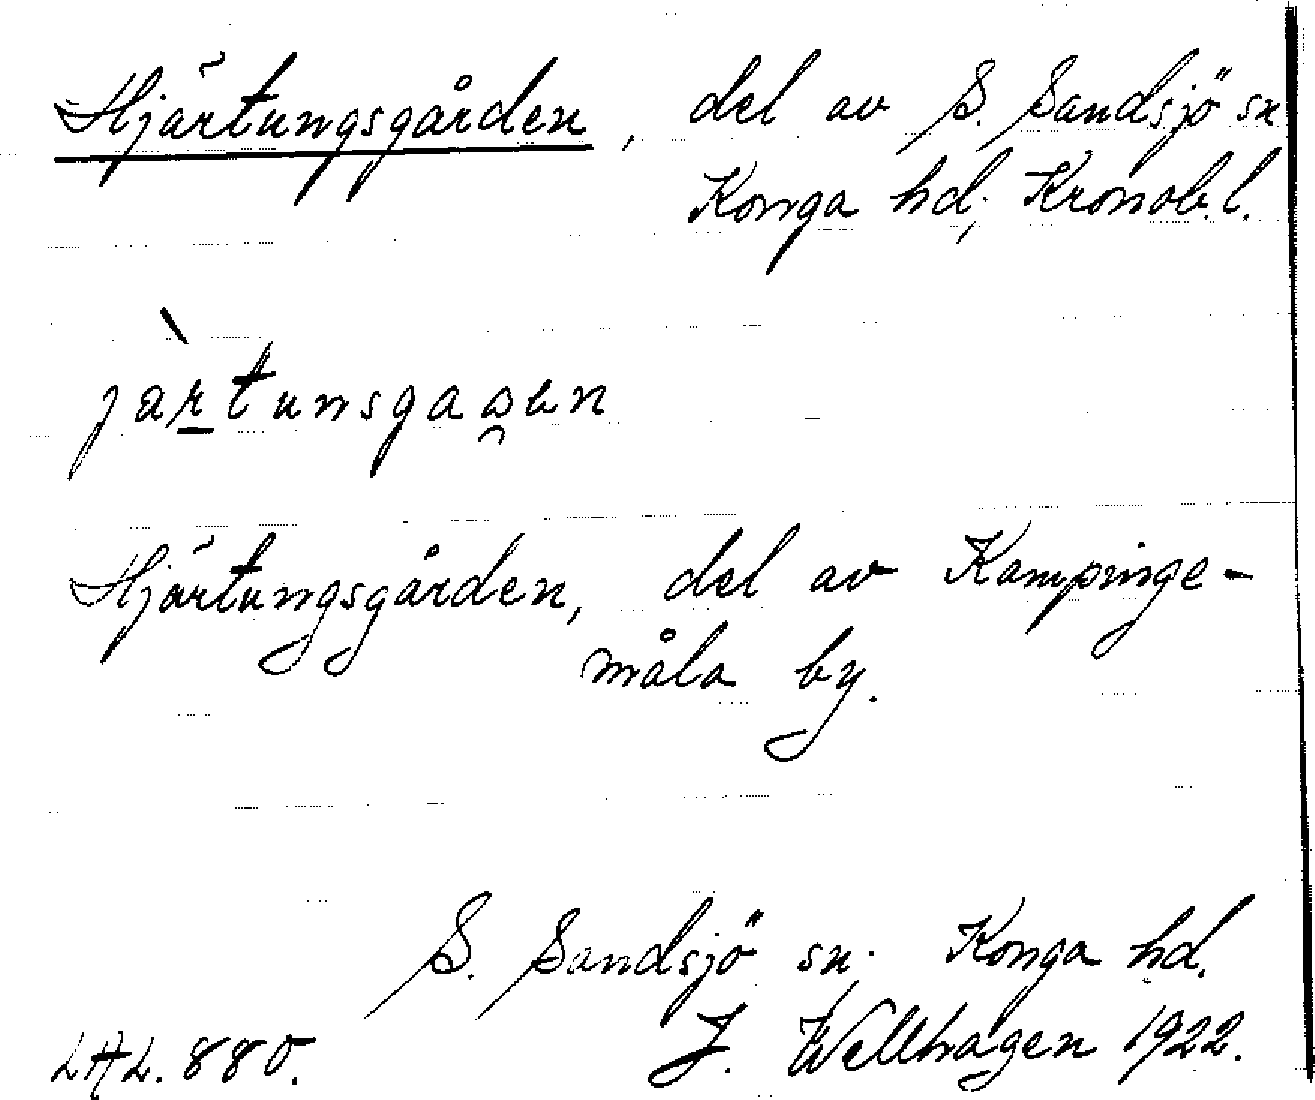 Hjärtungsgården, del av S. Sandsjö sn
Konga hd, Kronob. l.
jàrtunsgaɷen
Hjärtungsgården, del av Kampinge-
måla by.
S. Sandsjö sn. Konga hd.
LAL. 880. J. Wellhagen 1922.